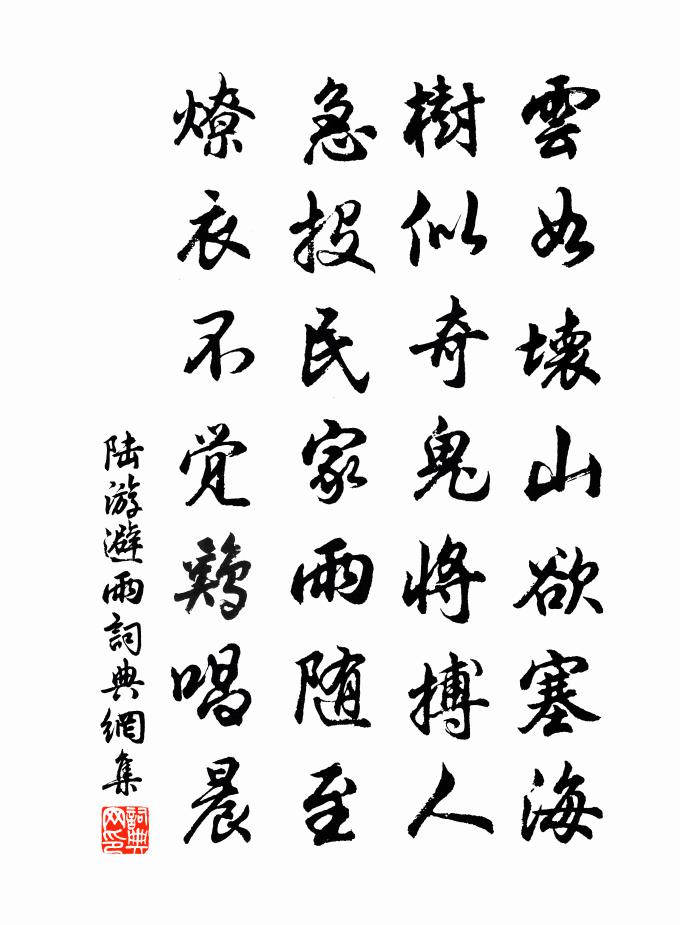 雲如壞山欲塞海
樹似奇鬼將搏人
急投民家雨随至
燎衣不觉鷄唱晨
陆游避雨詞典網集
詞典网印